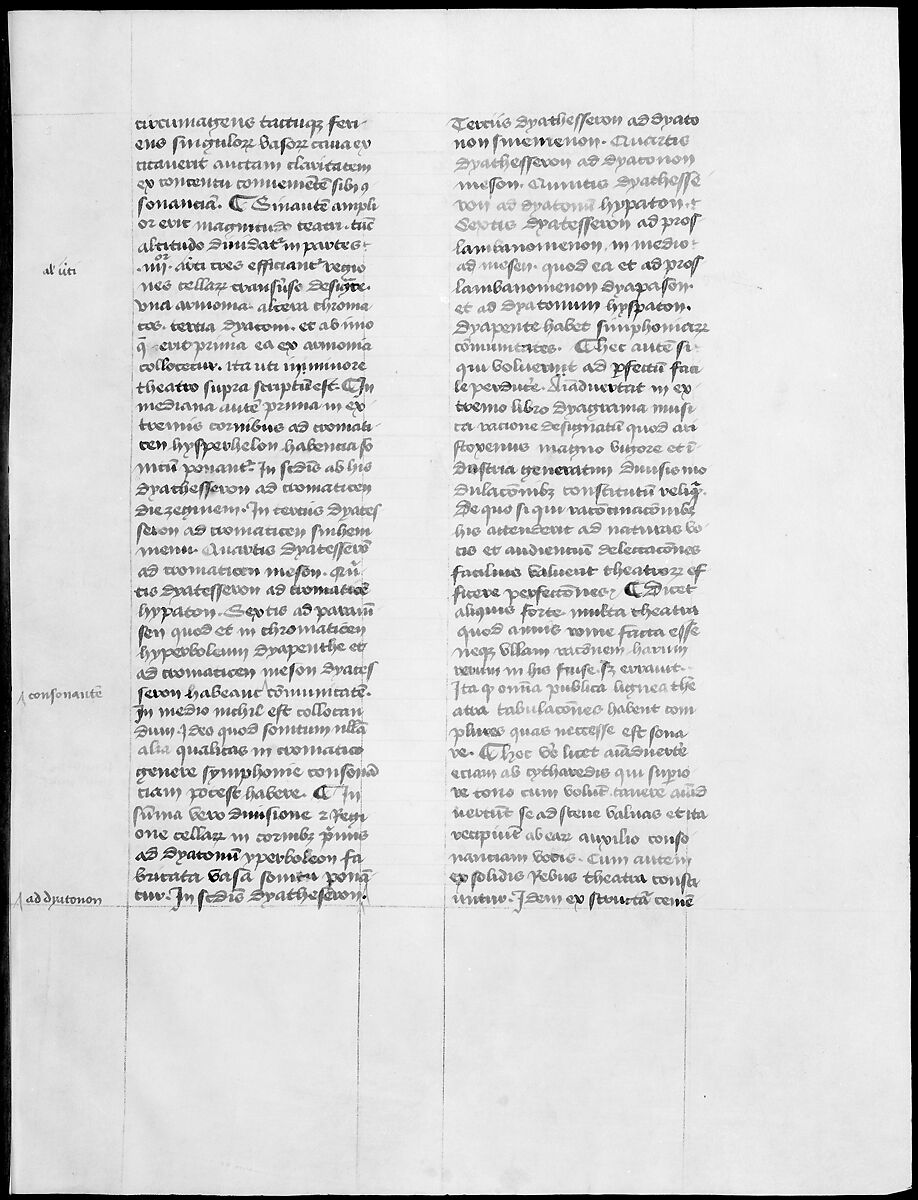 circumagens tactuq; feri-
ens singuloꝝ vasoꝝ caua ex
citauerit auctam claritatem
ex concentu conuenientē sibi ꝯ
sonanciā. ¶ Sinautē ampli
or erit magnitudo teatri. tūc
altitudo diuidat᷑ in partes
.iiii.or arti tres efficiant᷑ regio
nes cellaꝝ transu̾so desig̅te.
vna armonia. altera chroma
tos. tercia dyatoni. et ab imo
q̄ erit prima ea ex armonia
collocetur. ita uti in minore
theatro supra scriptū est. ¶ In
mediana autē prima in ex
tremis cornibus ad cromati
cen hysperbelon habencia so
nitū ponant᷑. In scd̄is ab his
dyathesseron ad cromaticen
diezegmem. In terciis dyates
seron ad cromaticen sinhem
menu. Quartis dyatesserō
ad cromaticen meson. Qui̅
tis dyatesseron ad cromaticē
hypaton. Sextis ad paramē
sen quod et in chromaticen
hyperboleum dyapenthe et
ad cromaticen meson dyates
seron habeant cōmunitatē.
In medio nichil est collocan
dum Ideo quod sonitum nllā
alia qualitas in cromatico
genere symphonie consonā
ciam potest habere. ¶ In
sūma vero diuisione ⁊ Regi
one cellaꝝ in cornibꝫ p̄mis
ad dyatonū yperboleon fa
bricata vasa sonitu ponā
tur. In scd̄is dyatheseron.
al' uti
consonantē
ad dyatonon
Terciis dyathesseron ad dyato
non sinemenon. Quartis
dyathesseron ad dyatonon
meson. Quintis dyathesse
ron ad dyatonū hypaton.
Sextis dyatesseron ad pros
lambanomenon. in medio
ad mesen. quod ea et ad pros
lambanomenon dyapason.
et ad dyatonum hyspaton.
dyapente habet simphoniaꝝ
cōmunitates. ¶ Hec autē si
qui voluerint ad ꝑfectū faci
le perduc̾e. Aīaduertat in ex-
tremo libro dyagrama musi
ca racione designatū quod ari
stoxenus magno vigore et ī
dustria generatim diuisis mo
dulacōnibꝫ constitutū reliq̄.
De quo si qui raciocinacōnibꝫ
his attenderit ad naturas vo-
cis et audienciū delectacōnes
facilius valuerit theatroꝝ ef
ficere perfectiones. ¶ Dicet
aliquis forte multa theatra
quod annis rome facta esse
neqꝫ vllam racionem harum
rerum in his fuisse. sꝫ errauit.
Ita ꝙ om̄ia publica lignea the
atra tabulacōnes habent com
plures quas neccesse est sona
re. ¶ Hoc v̾o licet aīaduert̾e
eciam ab cytharedis qui sup̾io
re tono cum volūt canere auād
uertunt se ad scene valuas et ita
recipiūt ab eaꝝ auxilio conso
nanciam vocis. Cum autem
ex solidis Rebus theatra consti
untur. Idem ex structa cemē